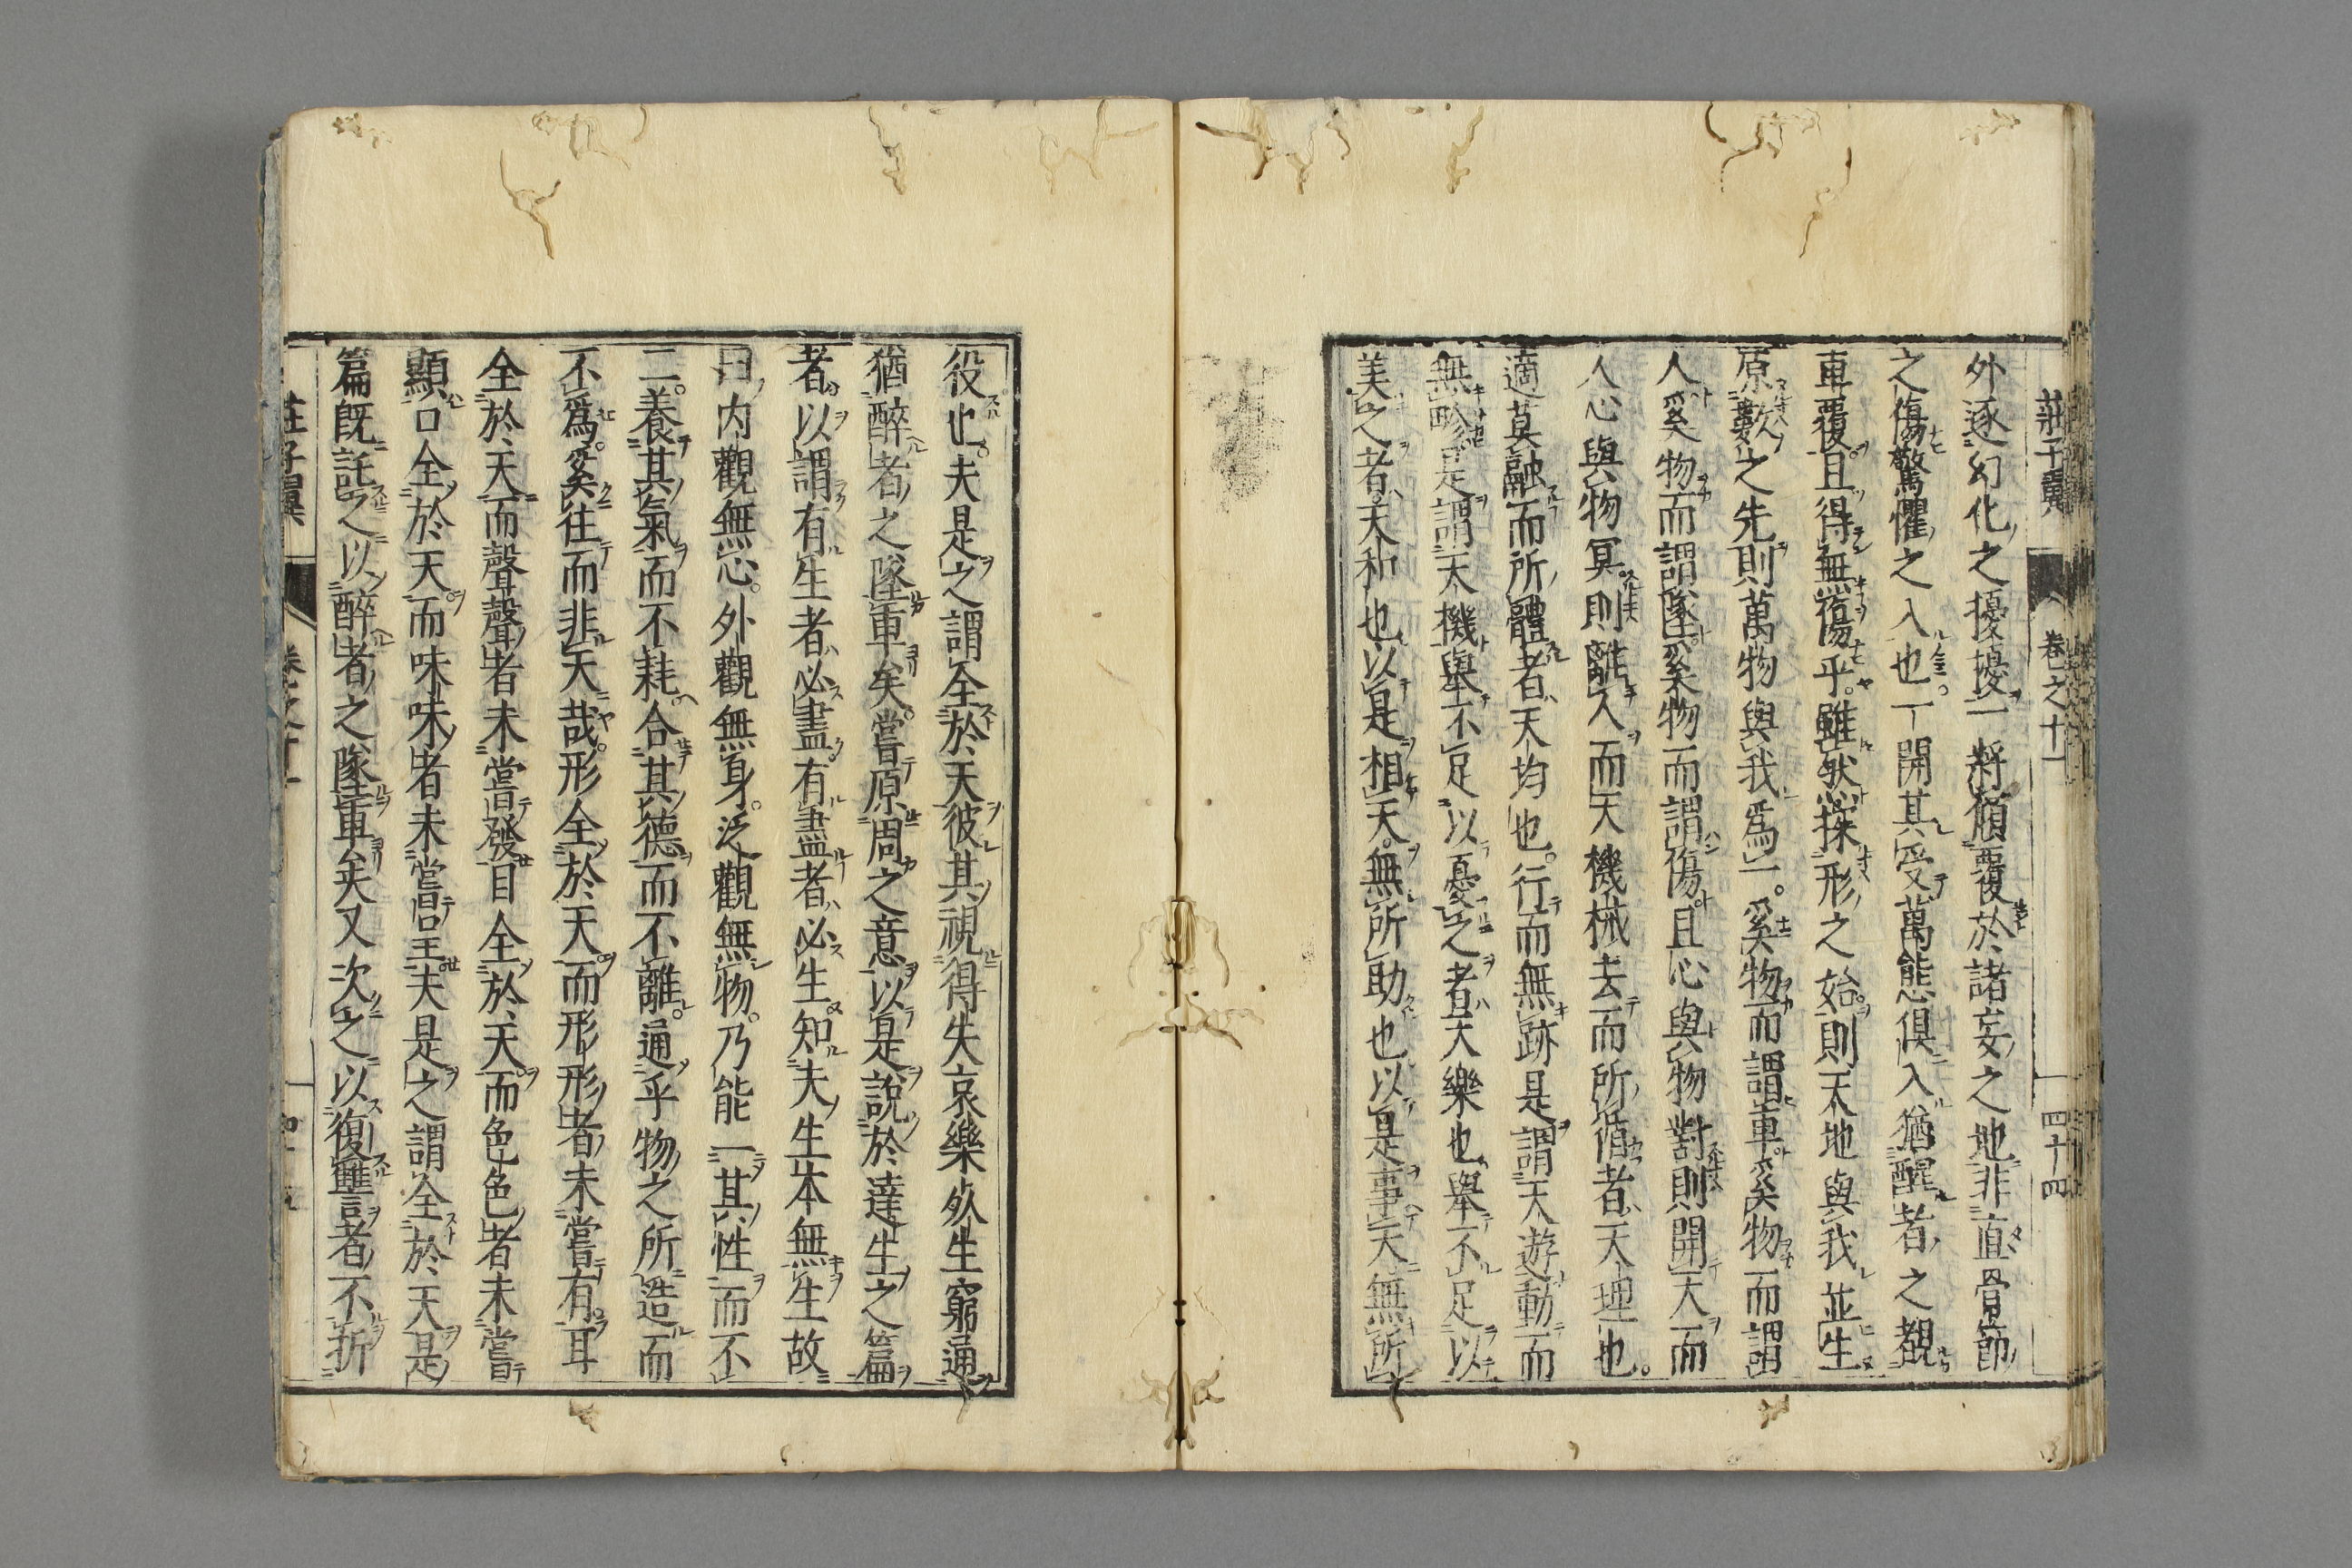 莊子翼 卷之十一 四十四
外逐幻化之擾擾一將顚覆於諸妄之地非直骨節
之傷驚懼之入也一開其受萬態俱入猶醒者之覩
車覆且得無傷乎雖然探形之始則天地與我並生
原數之先則萬物與我爲一奚物而謂車奚物而謂
人奚物而謂墜奚物而謂傷且心與物對則開天而
人心與物冥則離人而天機械去而所循者天理也
適莫融而所體者天均也行而無跡是謂天遊動而
無畛是謂天機擧不足以憂之者天樂也擧不足以
美之者天和也以是相天無所助也以是事天無所
役也夫是之謂全於天彼其視得失哀樂死生窮通
猶醉者之墜車矣嘗原周之意以是說於達生之篇
者以謂有生者必盡有盡者必生知夫生本無生故
曰内觀無心外觀無身泛觀無物乃能一其性而不
二養其氣而不耗合其德而不離通乎物之所造而
不爲奚往而非天哉形全於天而形形者未嘗有耳
全於天而聲聲者未嘗發目全於天而色色者未嘗
顯口全於天而味味者未嘗呈夫是之謂全於天是
篇既託之以醉者之墜車矣又次之以復讐者不折
莊子翼 卷之十一